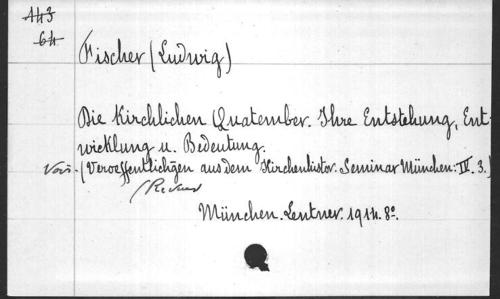 A43
64
Fischer (Ludwig)
Die Kirchlichen Quatember. Ihre Entstehung, Ent-
wicklung u. Bedeutung.
Voir. (Veroeffentlichgen aus dem Kirchenhistor. Seminar München: IV. 3.)
München. Lentner. 1914. 8º.